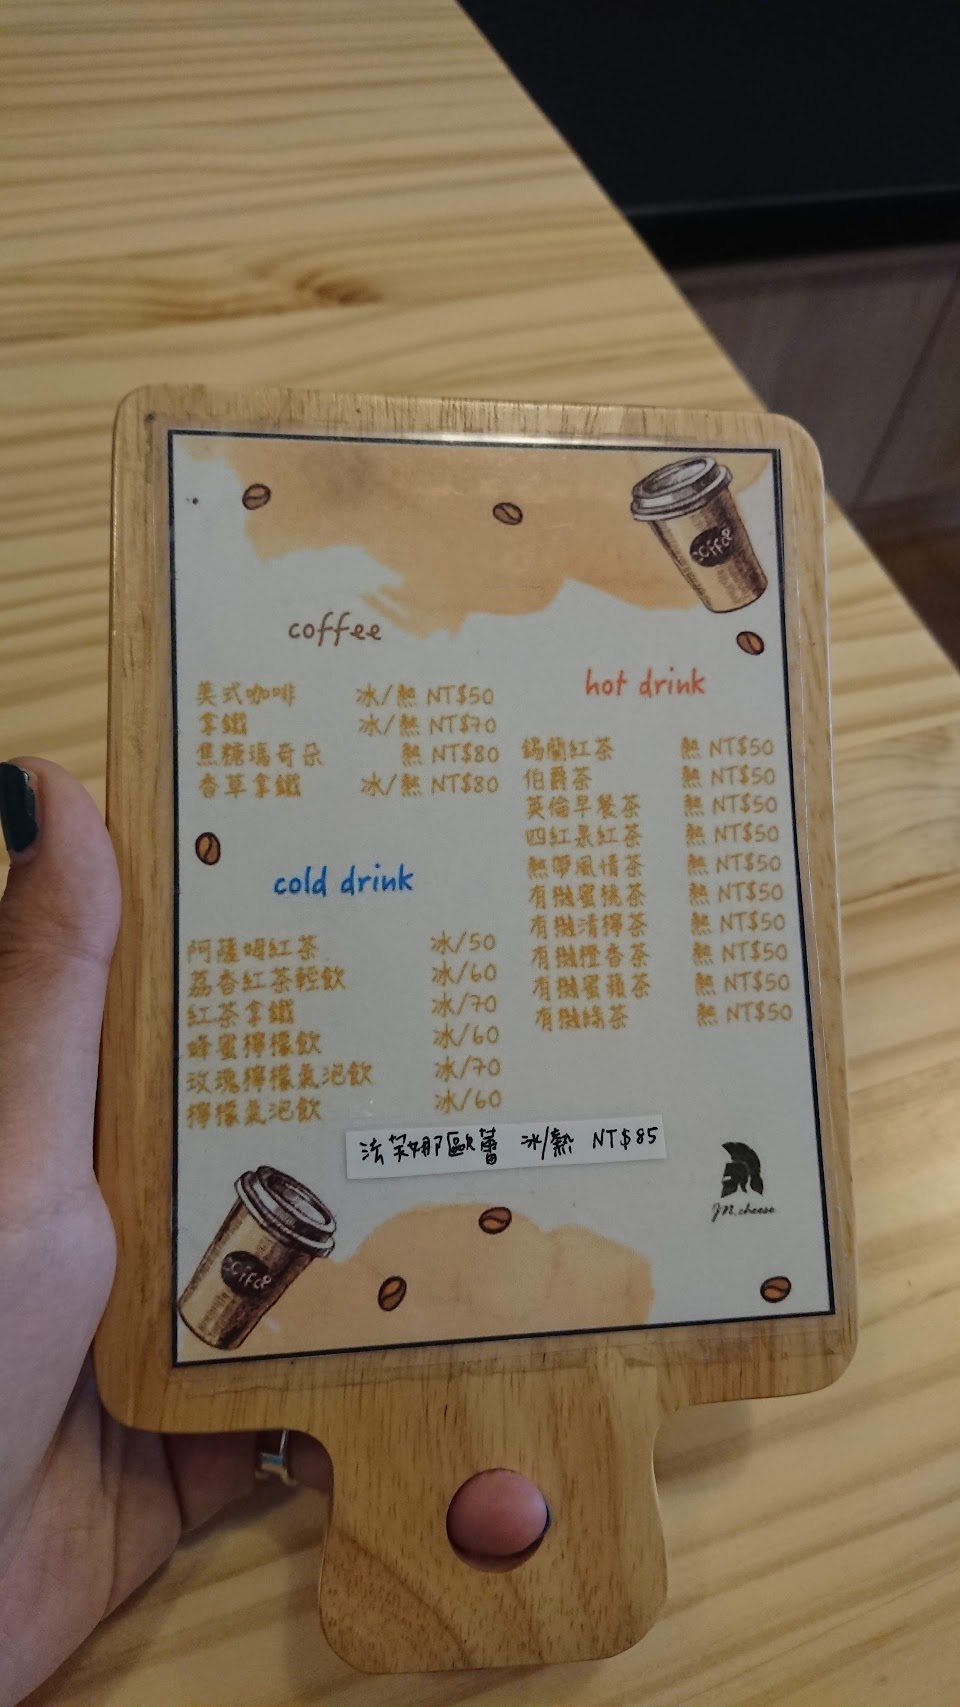 coffee
美式咖啡 冰/熱 NT$50
拿鐵 冰/熱 NT$70
焦糖瑪奇朵 熱 NT$80
香草拿鐵 冰/熱 NT$80
cold drink
阿薩姆紅茶 冰/50
荔香紅茶輕飲 冰/60
紅茶拿鐵 冰/70
蜂蜜檸檬飲 冰/60
玫瑰檸檬氣泡飲 冰/70
檸檬氣泡飲 冰/60
hot drink
錫蘭紅茶 熱 NT$50
伯爵茶 熱 NT$50
英倫早餐茶 熱 NT$50
四紅果紅茶 熱 NT$50
熱帶風情茶 熱 NT$50
有機蜜桃茶 熱 NT$50
有機清檸茶 熱 NT$50
有機橙香茶 熱 NT$50
有機蜜蘋茶 熱 NT$50
有機綠茶 熱 NT$50
法茉娜歐蕾 冰/熱 NT$85
JN.cheese
coffee
coffee